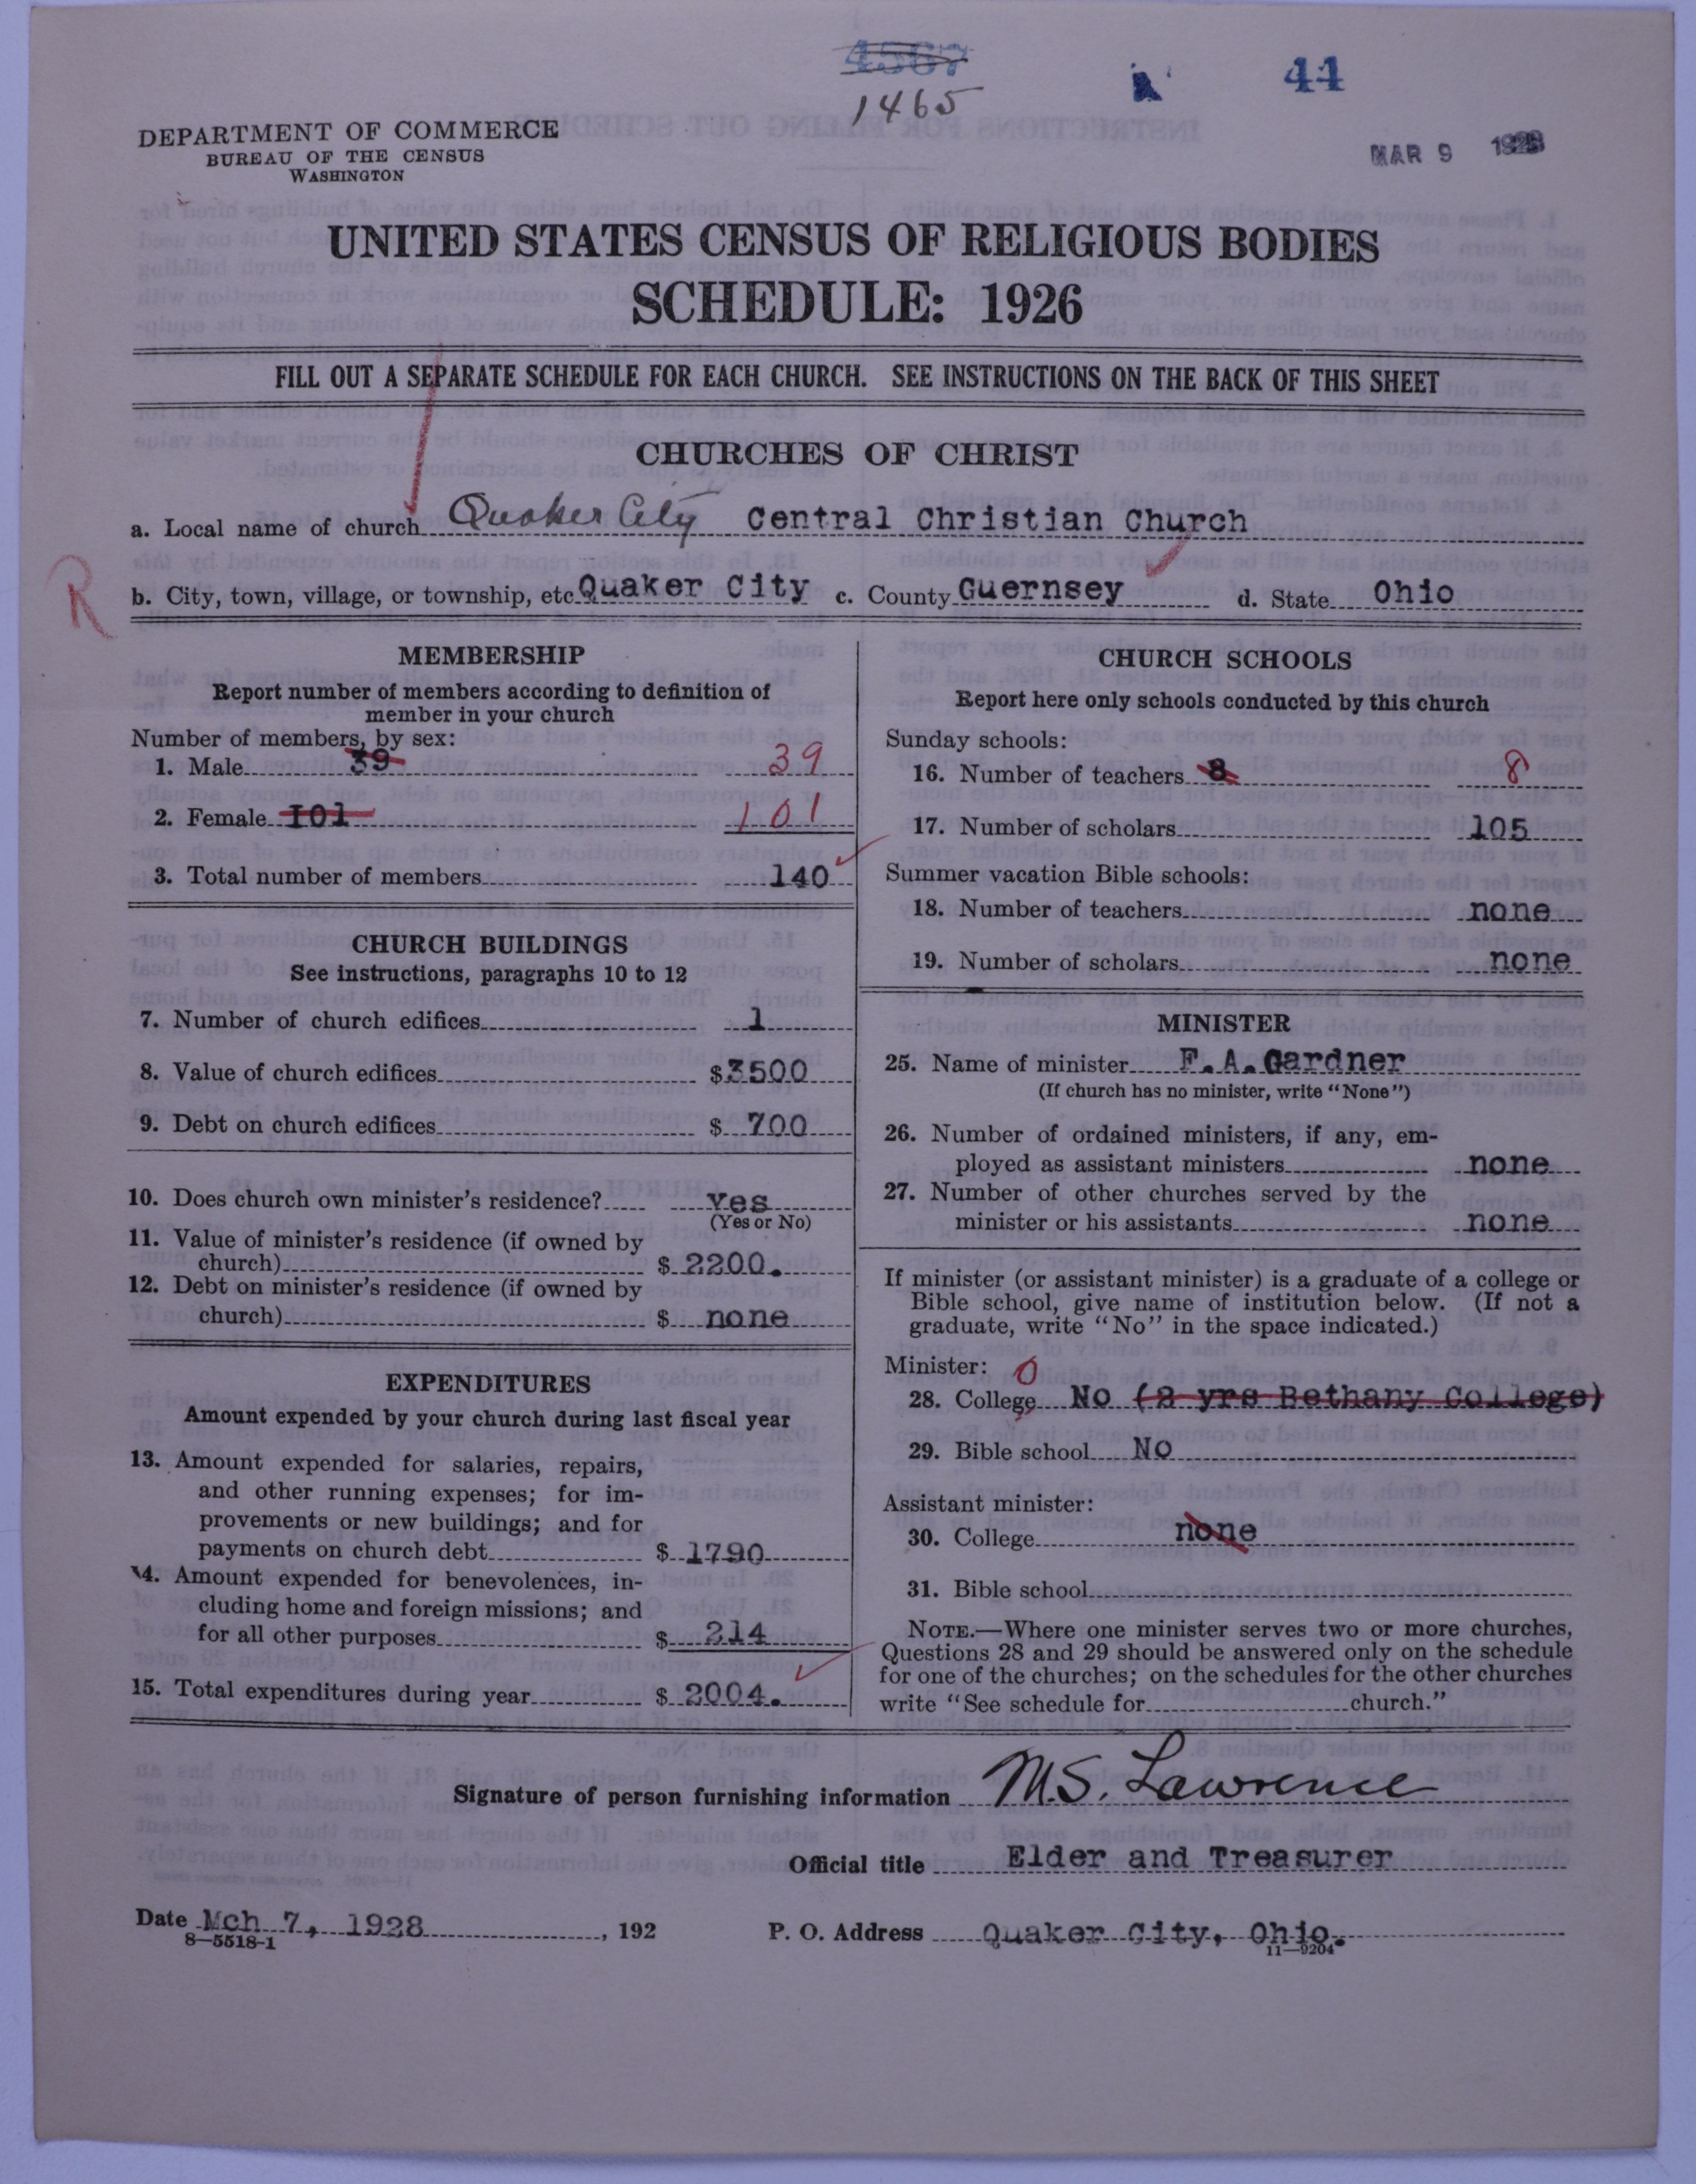 4567
1465
44
DEPARTMENT OF COMMERCE
BUREAU OF THE CENSUS
WASHINGTON
MAR 9 1928
UNITED STATES CENSUS OF RELIGIOUS BODIES
SCHEDULE: 1926
FILL OUT A SEPARATE SCHEDULE FOR EACH CHURCH. SEE INSTRUCTIONS ON THE BACK OF THIS SHEET
CHURCHES OF CHRIST
a. Local name of church Quaker City Central Christian Church
R
b. City, town, village, or township, etc. Quaker City c. County Guernsey d. State Ohio
MEMBERSHIP
Report number of members according to definition of
member in your church
Number of members, by sex:
1. Male 39 39
2. Female 101 101
3. Total number of members 140
CHURCH BUILDINGS
See instructions, paragraphs 10 to 12
7. Number of church edifices 1
8. Value of church edifices $3500
9. Debt on church edifices $ 700
10. Does church own minister's residence? Yes
(Yes or No)
11. Value of minister's residence (if owned by
church) $ 2200.
12. Debt on minister's residence (if owned by
church) $ none
EXPENDITURES
Amount expended by your church during last fiscal year
13. Amount expended for salaries, repairs,
and other running expenses; for im-
provements or new buildings; and for
payments on church debt $ 1790
14. Amount expended for benevolences, in-
cluding home and foreign missions; and
for all other purposes $ 214
15. Total expenditures during year $ 2004.
CHURCH SCHOOLS
Report here only schools conducted by this church
Sunday schools:
16. Number of teachers 8 8
17. Number of scholars 105
Summer vacation Bible schools:
18. Number of teachers none
19. Number of scholars none
MINISTER
25. Name of minister F. A. Gardner
(If church has no minister, write "None")
26. Number of ordained ministers, if any, em-
ployed as assistant ministers none
27. Number of other churches served by the
minister or his assistants none
If minister (or assistant minister) is a graduate of a college or
Bible school, give name of institution below. (If not a
graduate, write "No" in the space indicated.)
Minister: 0
28. College No (2 yrs Bethany College)
29. Bible school No
Assistant minister:
30. College none
31. Bible school
NOTE.—Where one minister serves two or more churches,
Questions 28 and 29 should be answered only on the schedule
for one of the churches; on the schedules for the other churches
write "See schedule for church."
Signature of person furnishing information M.S. Lawrence
Official title Elder and Treasurer
Date Mch 7, 1928, 192 P. O. Address Quaker City, Ohio.
8—5518-1
11—9204